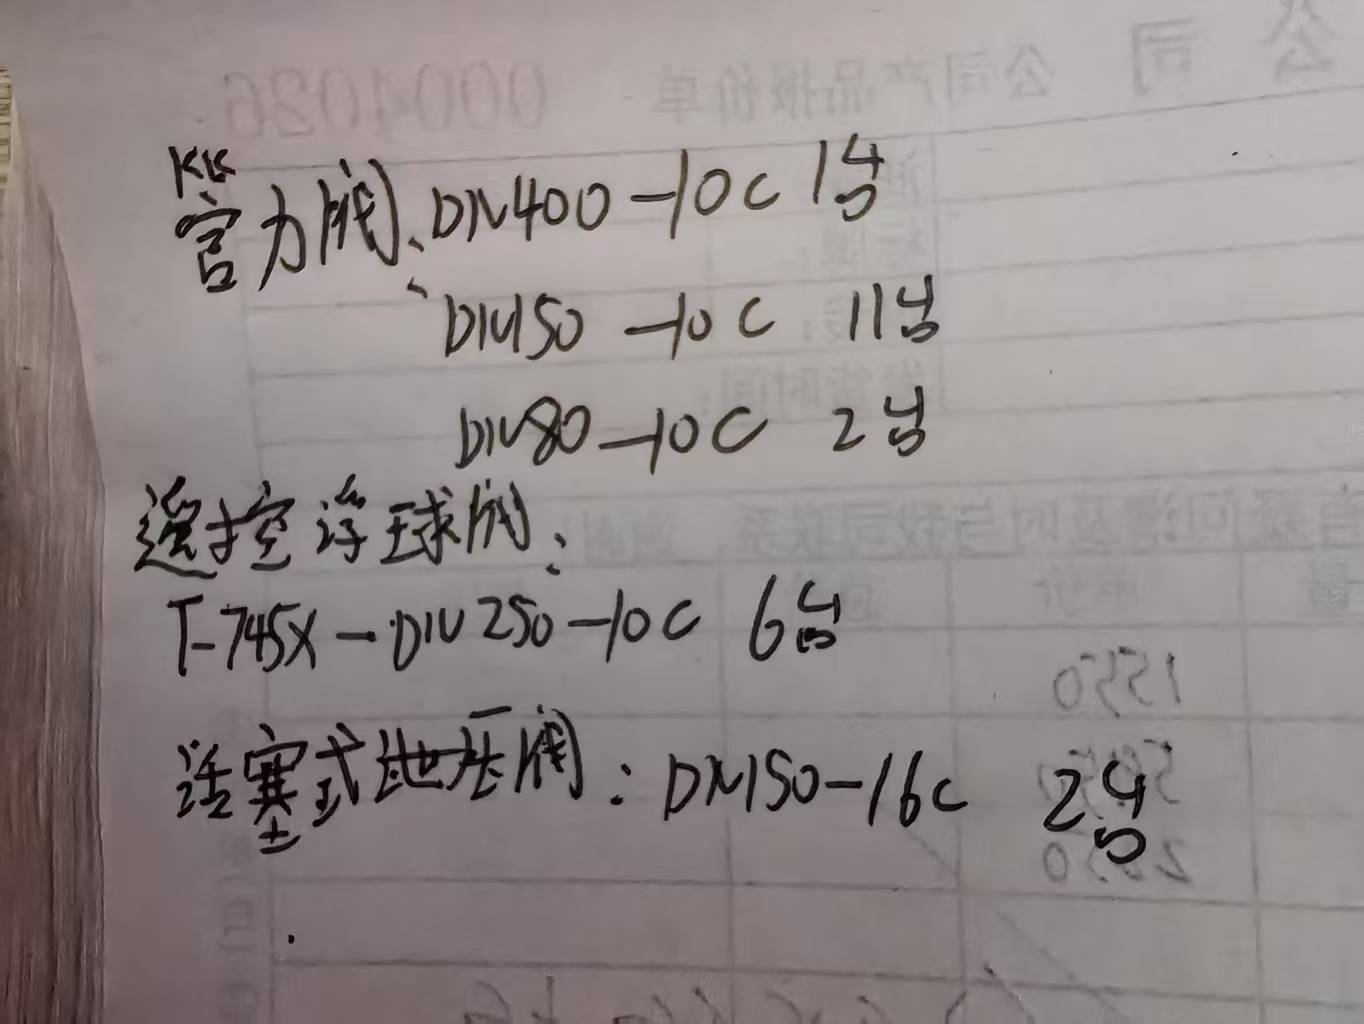 公司
公司产品报价单 0004026
管力阀、DN400-10C 1台
DN150-10C 11台
DN80-10C 2台
遥控浮球阀:
T-745X-DN250-10C 6台
活塞式地压阀:DN150-16C 2台
1550